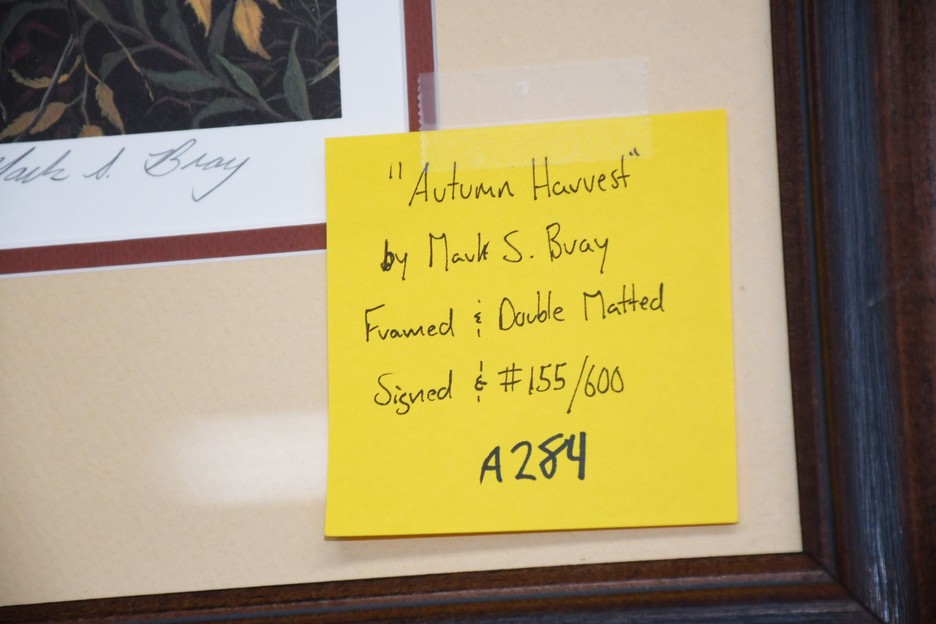 Mark S. Bray
"Autumn Harvest"
by Mark S. Bray
Framed & Double Matted
Signed & #155/600
A284